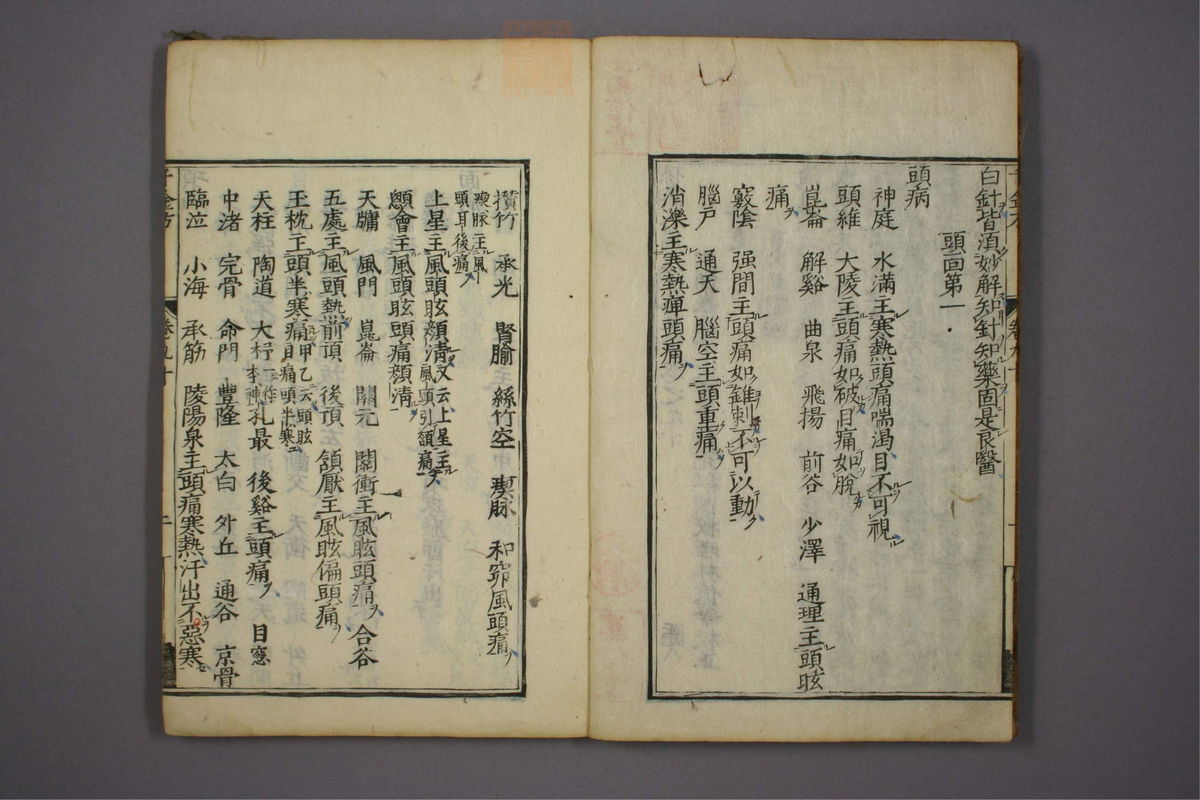 白針皆須妙解知針知藥固是良醫
頭面第一
頭病
神庭 水滿主寒熱頭痛喘渴目不可視
頭維 大陵主頭痛如破目痛如脫
崑崙 解谿 曲泉 飛揚 前谷 少澤 通理主頭眩
痛
竅陰 强間主頭痛如錐刺不可以動
腦戶 通天 腦空主頭重痛
消濼主寒熱痺頭痛
攢竹 承光 腎腧 絲竹空 瘈脉 和窌風頭痛
瘈脉主風頭耳後痛
上星主風頭眩顏清又云上星主風頭引頷痛
顖會主風頭眩頭痛顏清
天牖 風門 崑崙 關元 關衝主風眩頭痛 合谷
五處主風頭熱前頂 後頂 頷厭主風眩偏頭痛
玉枕主頭半寒痛甲乙云頭眩目痛頭半寒
天柱 陶道 大杼一作本神孔最 後谿主頭痛 目窻
中渚 完骨 命門 豐隆 太白 外丘 通谷 京骨
臨泣 小海 承筋 陵陽泉主頭痛寒熱汗出不惡寒